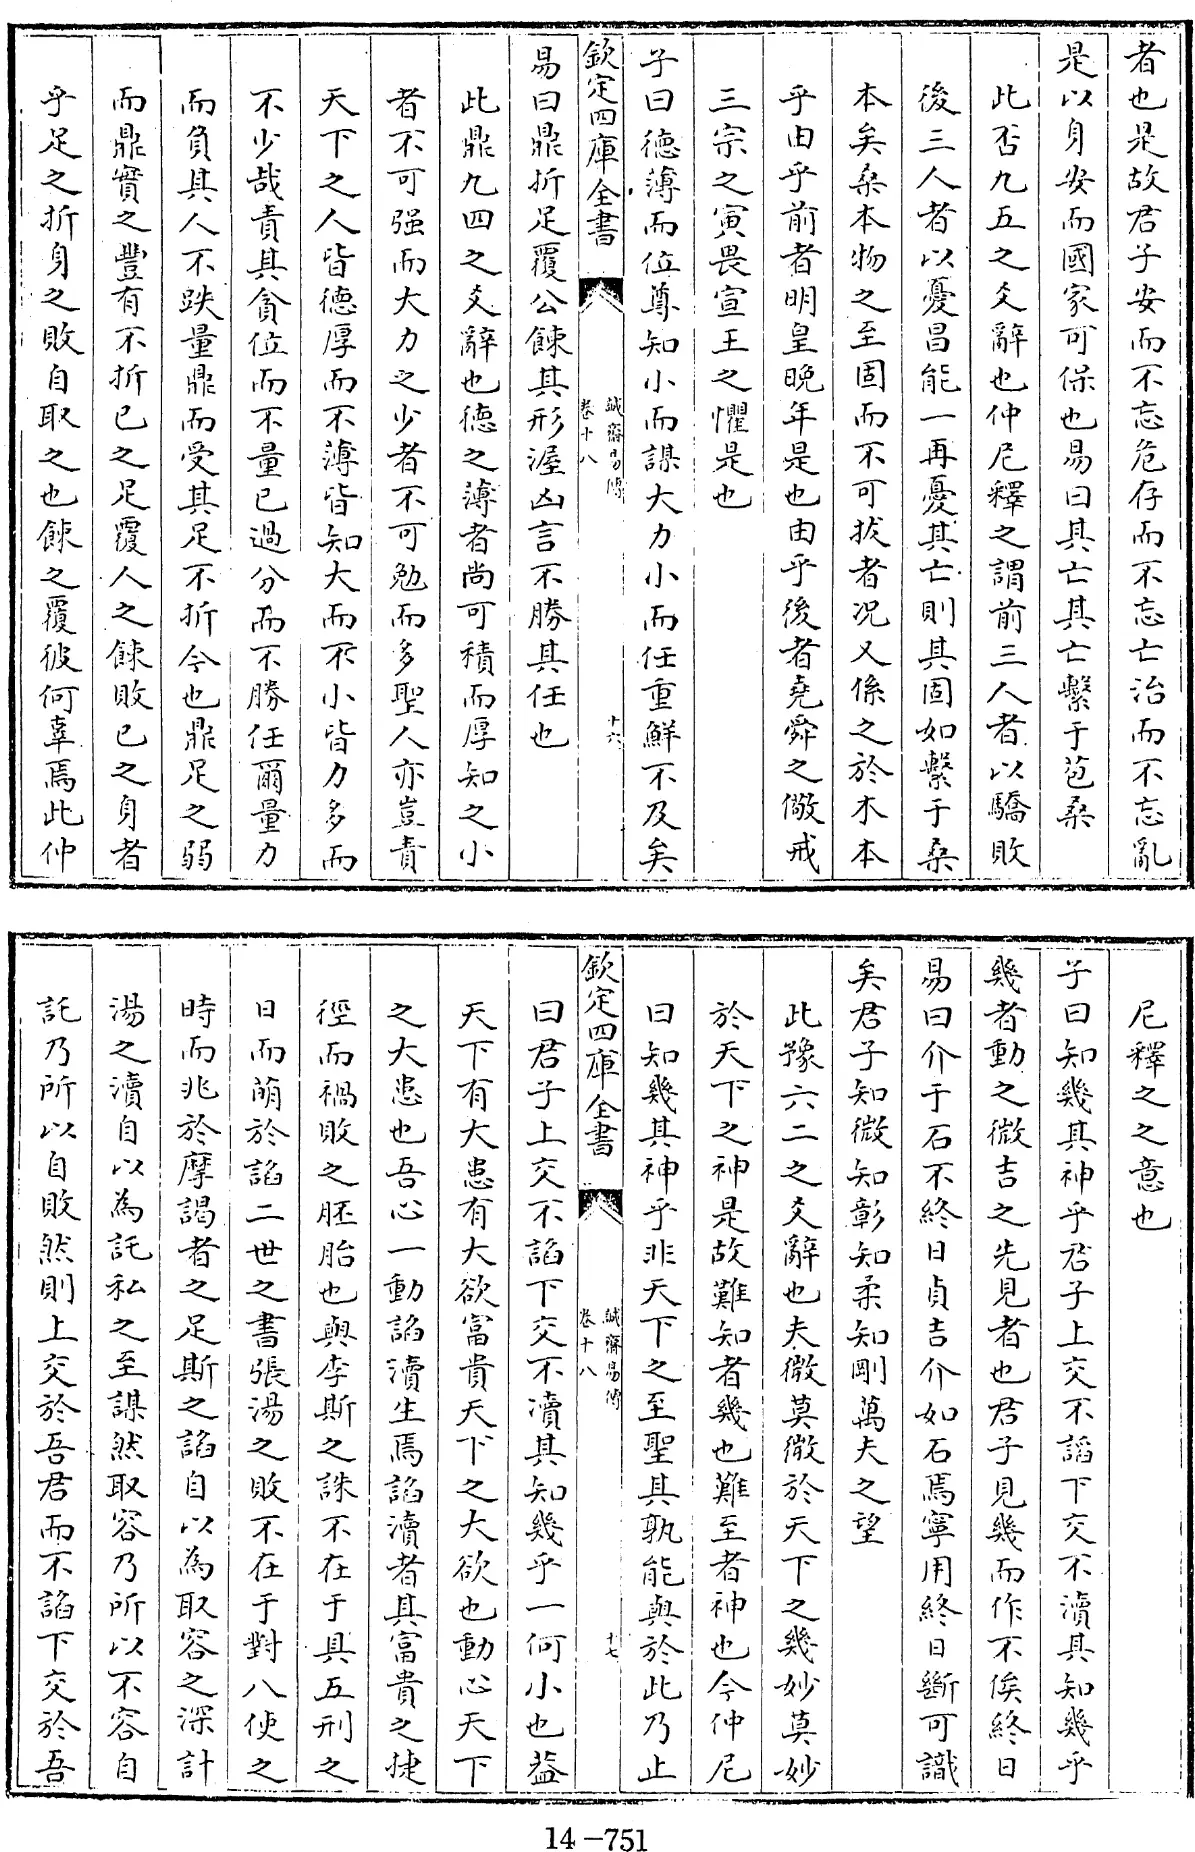 者也是故君子安而不忘危存而不忘亡治而不忘亂
是以身安而國家可保也易曰其亡其亡繫于苞桑
此否九五之爻辭也仲尼釋之謂前三人者以驕敗
後三人者以憂昌能一再憂其亡則其固如繫于桑
本矣桑本物之至固而不可拔者况又係之於木本
乎由乎前者明皇晚年是也由乎後者堯舜之儆戒
三宗之寅畏宣王之懼是也
子曰德薄而位尊知小而謀大力小而任重鮮不及矣
欽定四庫全書
誠齋易傳
卷十八
十六
易曰鼎折足覆公餗其形渥凶言不勝其任也
此鼎九四之爻辭也德之薄者尚可積而厚知之小
者不可强而大力之少者不可勉而多聖人亦豈責
天下之人皆德厚而不薄皆知大而不小皆力多而
不少哉責其貪位而不量已過分而不勝任爾量力
而負其人不跌量鼎而受其足不折今也鼎足之弱
而鼎實之豐有不折已之足覆人之餗敗已之身者
乎足之折身之敗自取之也餗之覆彼何辜焉此仲
尼釋之之意也
子曰知幾其神乎君子上交不諂下交不瀆其知幾乎
幾者動之微吉之先見者也君子見幾而作不俟終日
易曰介于石不終日貞吉介如石焉寧用終日斷可識
矣君子知微知彰知柔知剛萬夫之望
此豫六二之爻辭也夫微莫微於天下之幾妙莫妙
於天下之神是故難知者幾也難至者神也今仲尼
曰知幾其神乎非天下之至聖其孰能與於此乃止
欽定四庫全書
誠齋易傳
卷十八
十七
曰君子上交不諂下交不瀆其知幾乎一何小也葢
天下有大患有大欲富貴天下之大欲也動心天下
之大患也吾心一動諂瀆生焉諂瀆者其富貴之捷
徑而禍敗之胚胎也與李斯之誅不在于具五刑之
日而萌於諂二世之書張湯之敗不在于對八使之
時而兆於摩謁者之足斯之諂自以為取容之深計
湯之瀆自以為託私之至謀然取容乃所以不容自
託乃所以自敗然則上交於吾君而不諂下交於吾
14-751